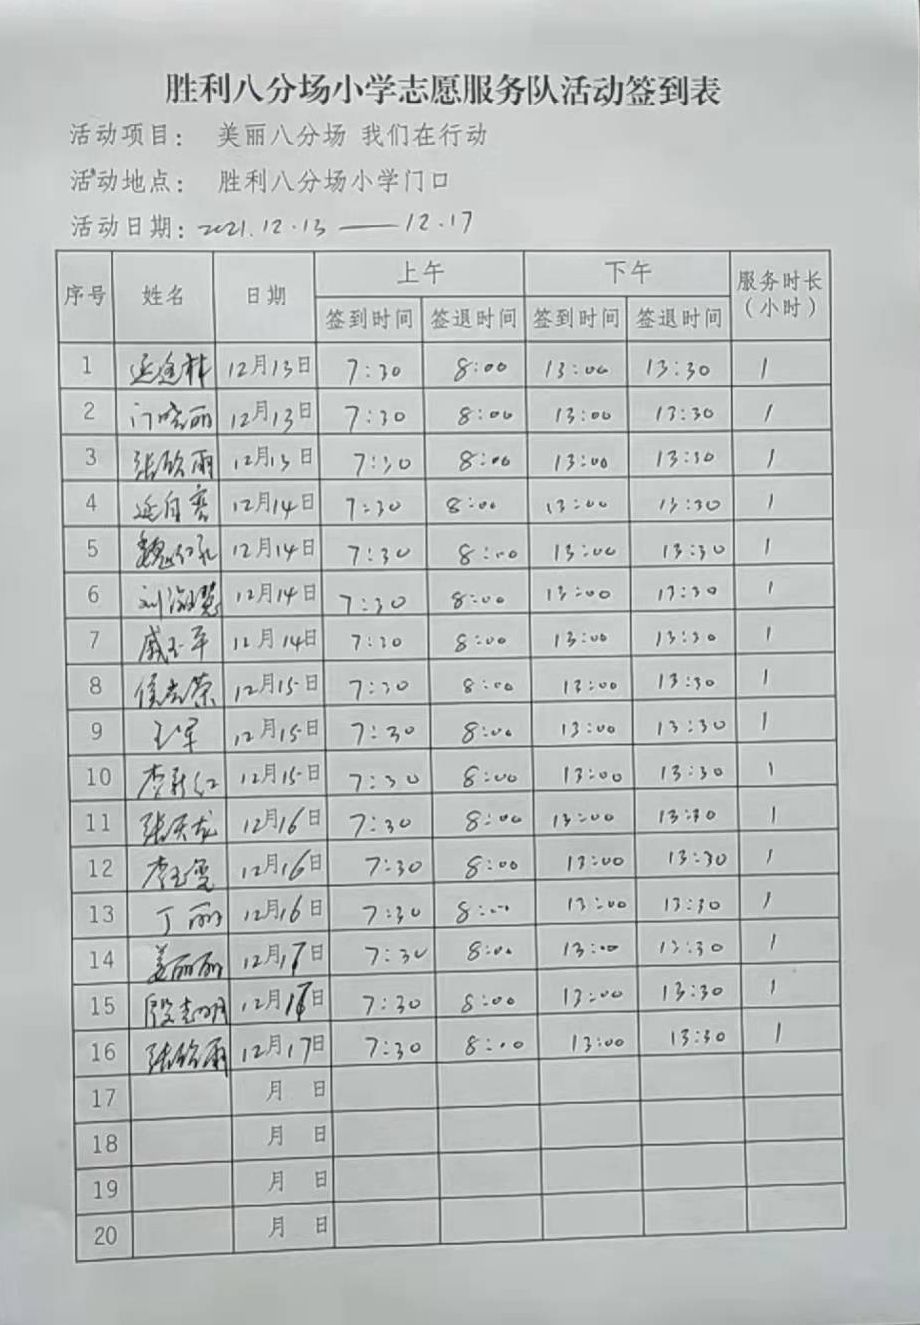 胜利八分场小学志愿服务队活动签到表
活动项目： 美丽八分场 我们在行动
活动地点： 胜利八分场小学门口
活动日期：2021.12.13 —— 12.17
序号 姓名 日期 上午 下午 服务时长（小时）
签到时间 签退时间 签到时间 签退时间
1 12月13日 7:30 8:00 13:00 13:30 1
2 门晓丽 12月13日 7:30 8:00 13:00 13:30 1
3 张欣雨 12月13日 7:30 8:00 13:00 13:30 1
4 12月14日 7:30 8:00 13:00 13:30 1
5 魏 12月14日 7:30 8:00 13:00 13:30 1
6 刘淑慧 12月14日 7:30 8:00 13:00 13:30 1
7 戚玉军 12月14日 7:30 8:00 13:00 13:30 1
8 侯志荣 12月15日 7:30 8:00 13:00 13:30 1
9 王军 12月15日 7:30 8:00 13:00 13:30 1
10 李新红 12月15日 7:30 8:00 13:00 13:30 1
11 张天龙 12月16日 7:30 8:00 13:00 13:30 1
12 李玉 12月16日 7:30 8:00 13:00 13:30 1
13 丁丽 12月16日 7:30 8:00 13:00 13:30 1
14 姜丽丽 12月17日 7:30 8:00 13:00 13:30 1
15 殷志明 12月17日 7:30 8:00 13:00 13:30 1
16 张欣雨 12月17日 7:30 8:00 13:00 13:30 1
17 月 日
18 月 日
19 月 日
20 月 日